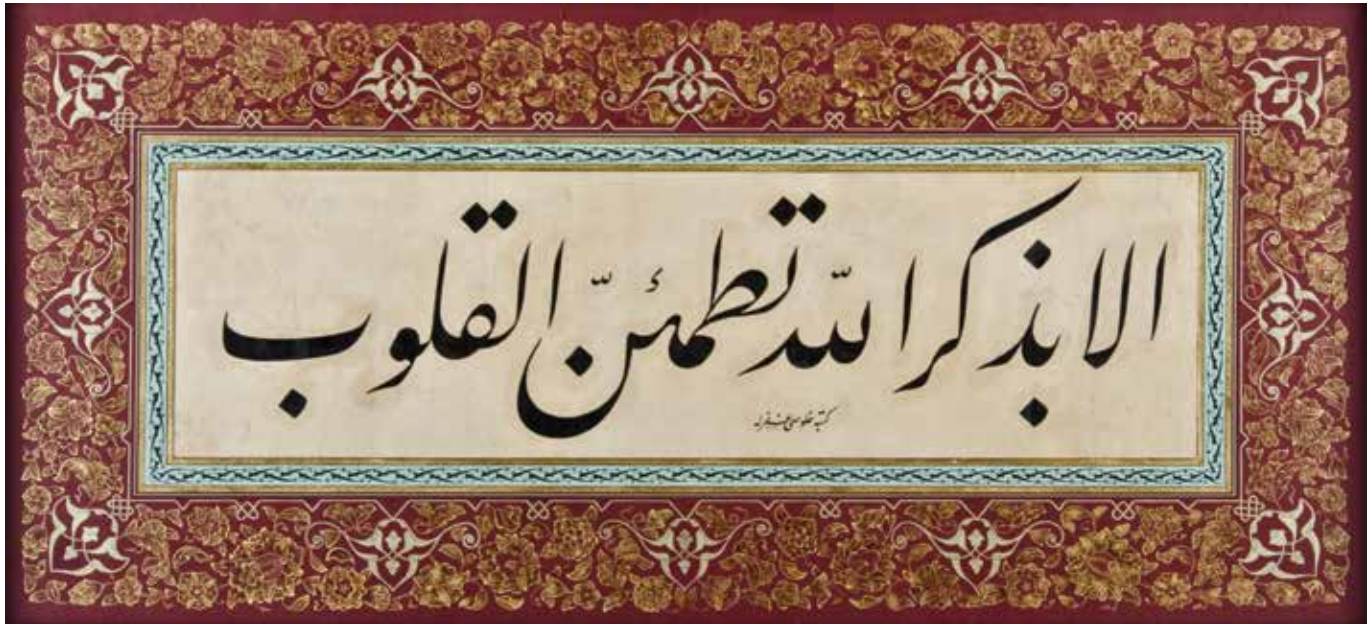 الا بذكر الله تطمئن القلوب
كتبه خلوصي غفرله